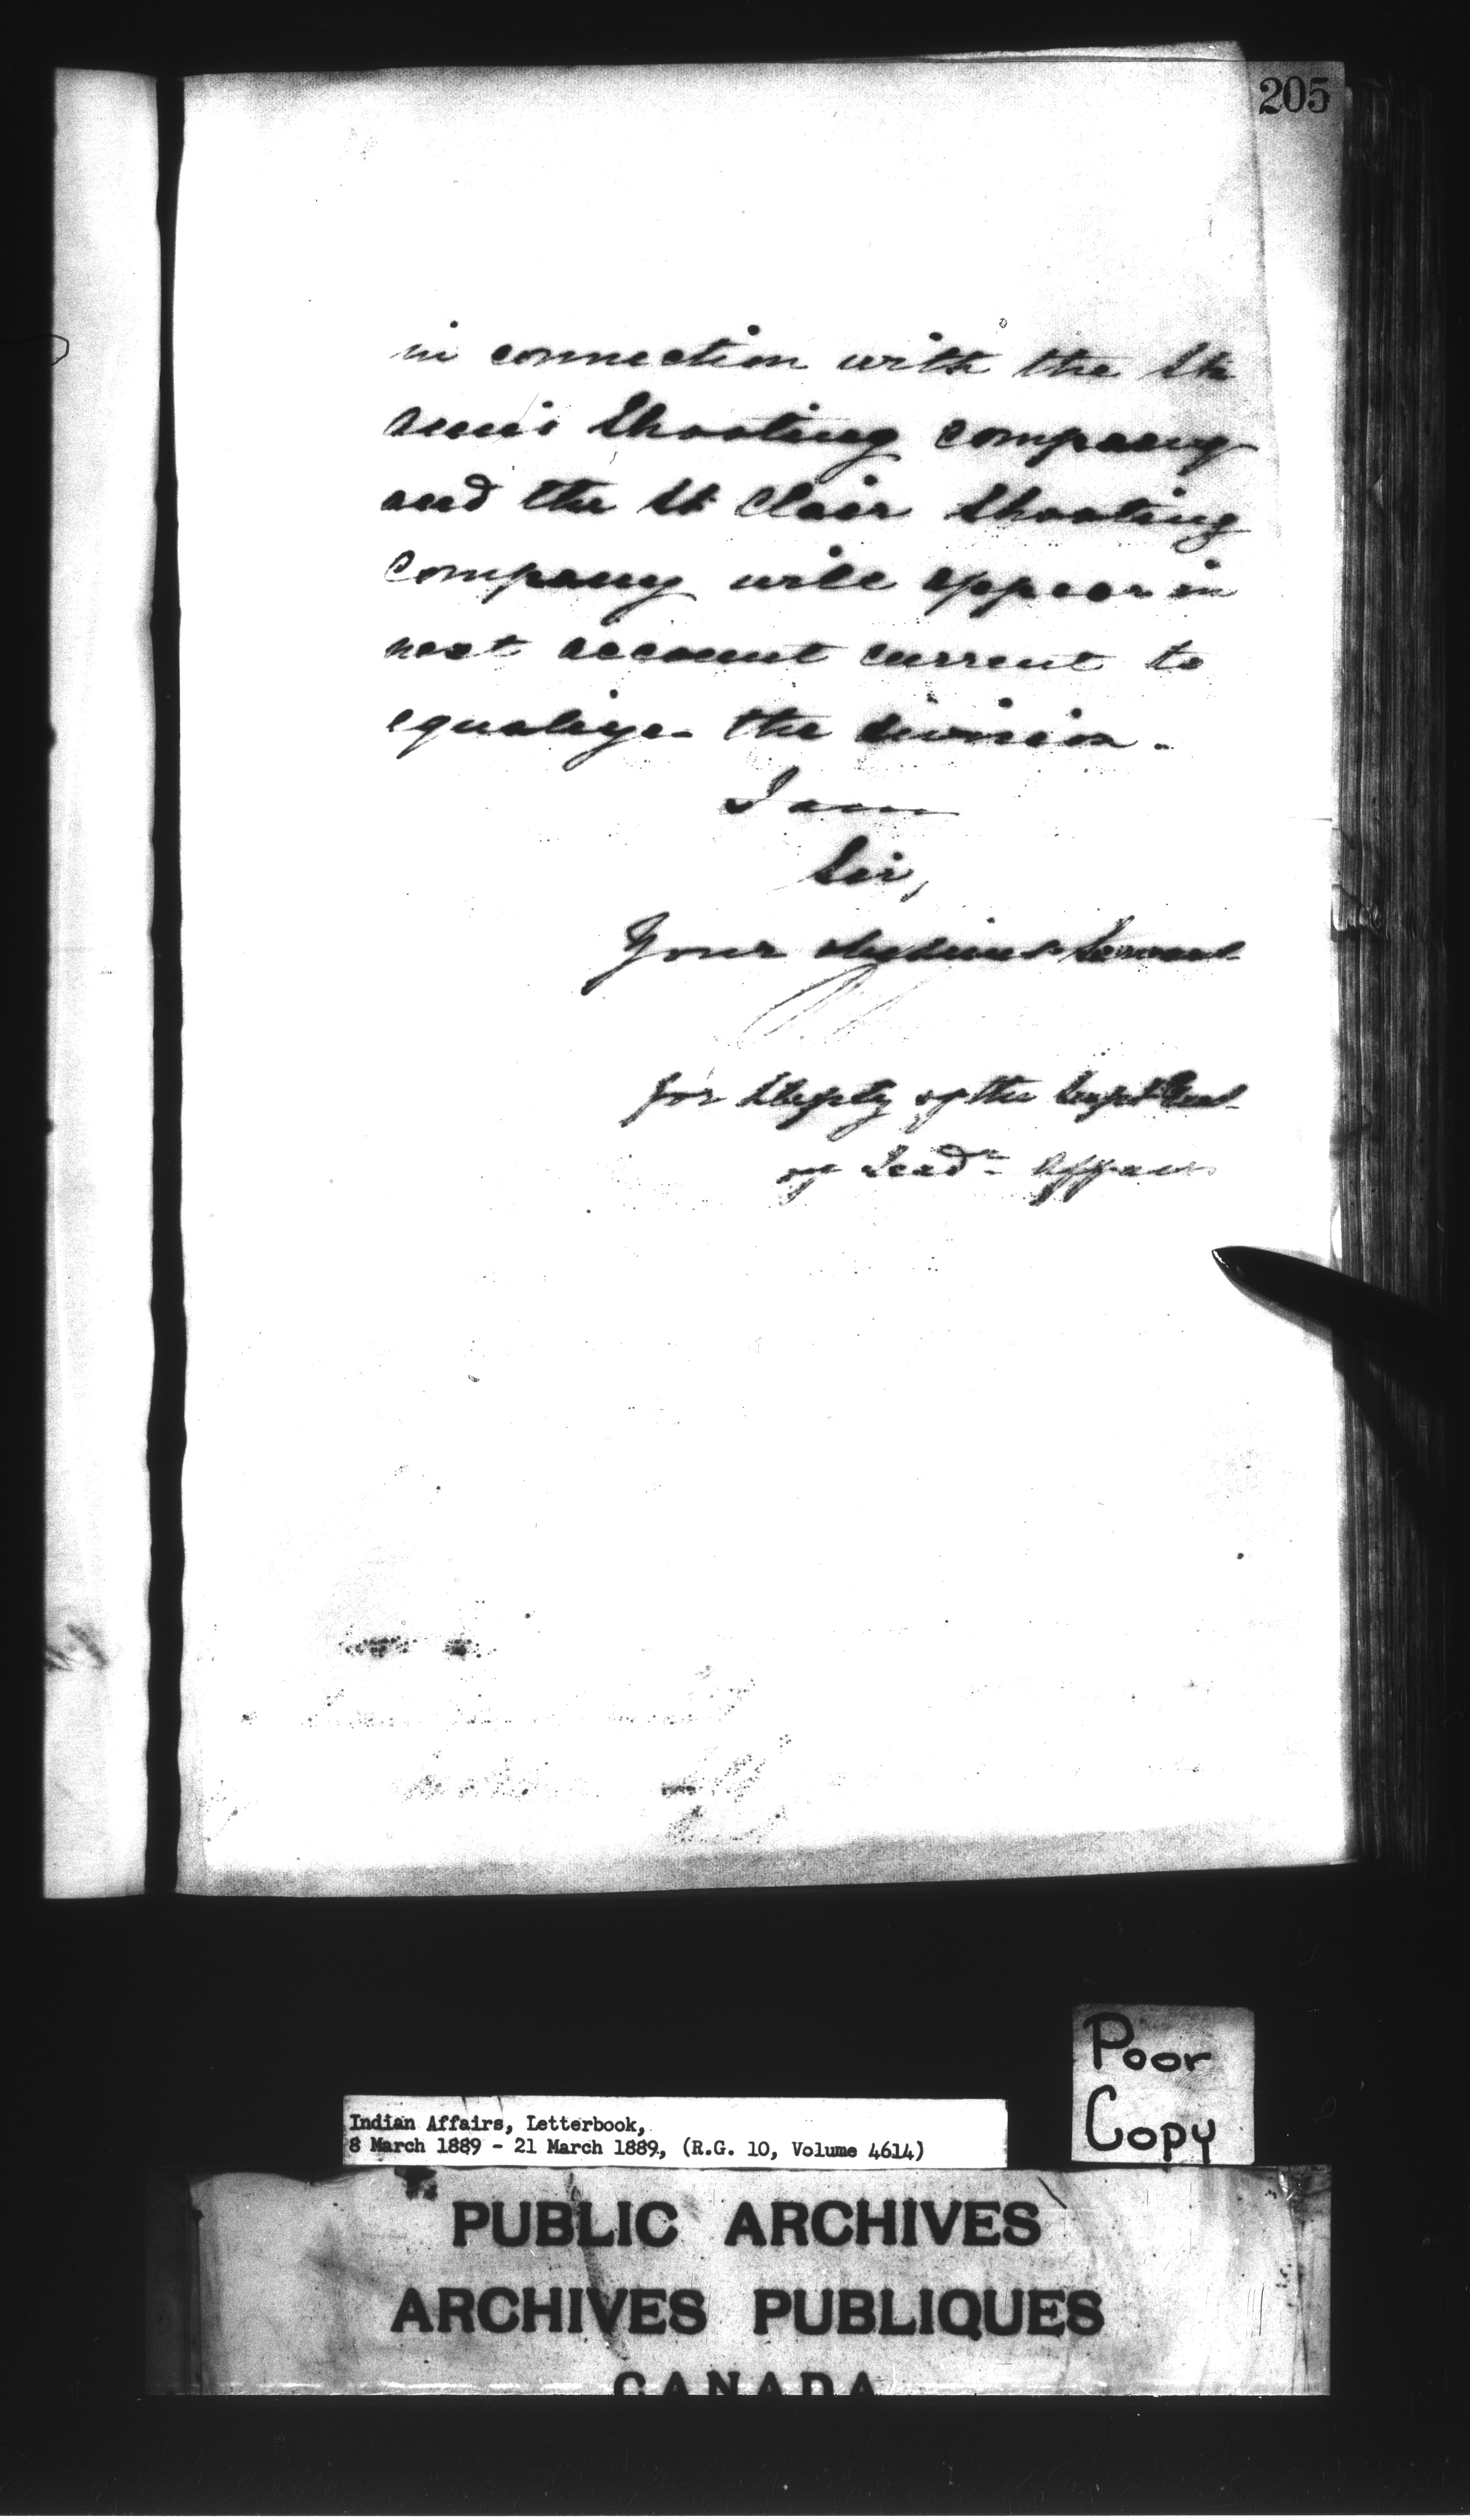 205
in connection with the St
Anns Shooting company
and the St Clair Shooting
Company will appear in
next account current to
equalize the division.
I am
Sir,
Your obedient Servant
for Deputy of the Supt Genl
of Indn Affairs
Poor
Copy
Indian Affairs, Letterbook,
8 March 1889 - 21 March 1889, (R.G. 10, Volume 4614)
PUBLIC ARCHIVES
ARCHIVES PUBLIQUES
CANADA